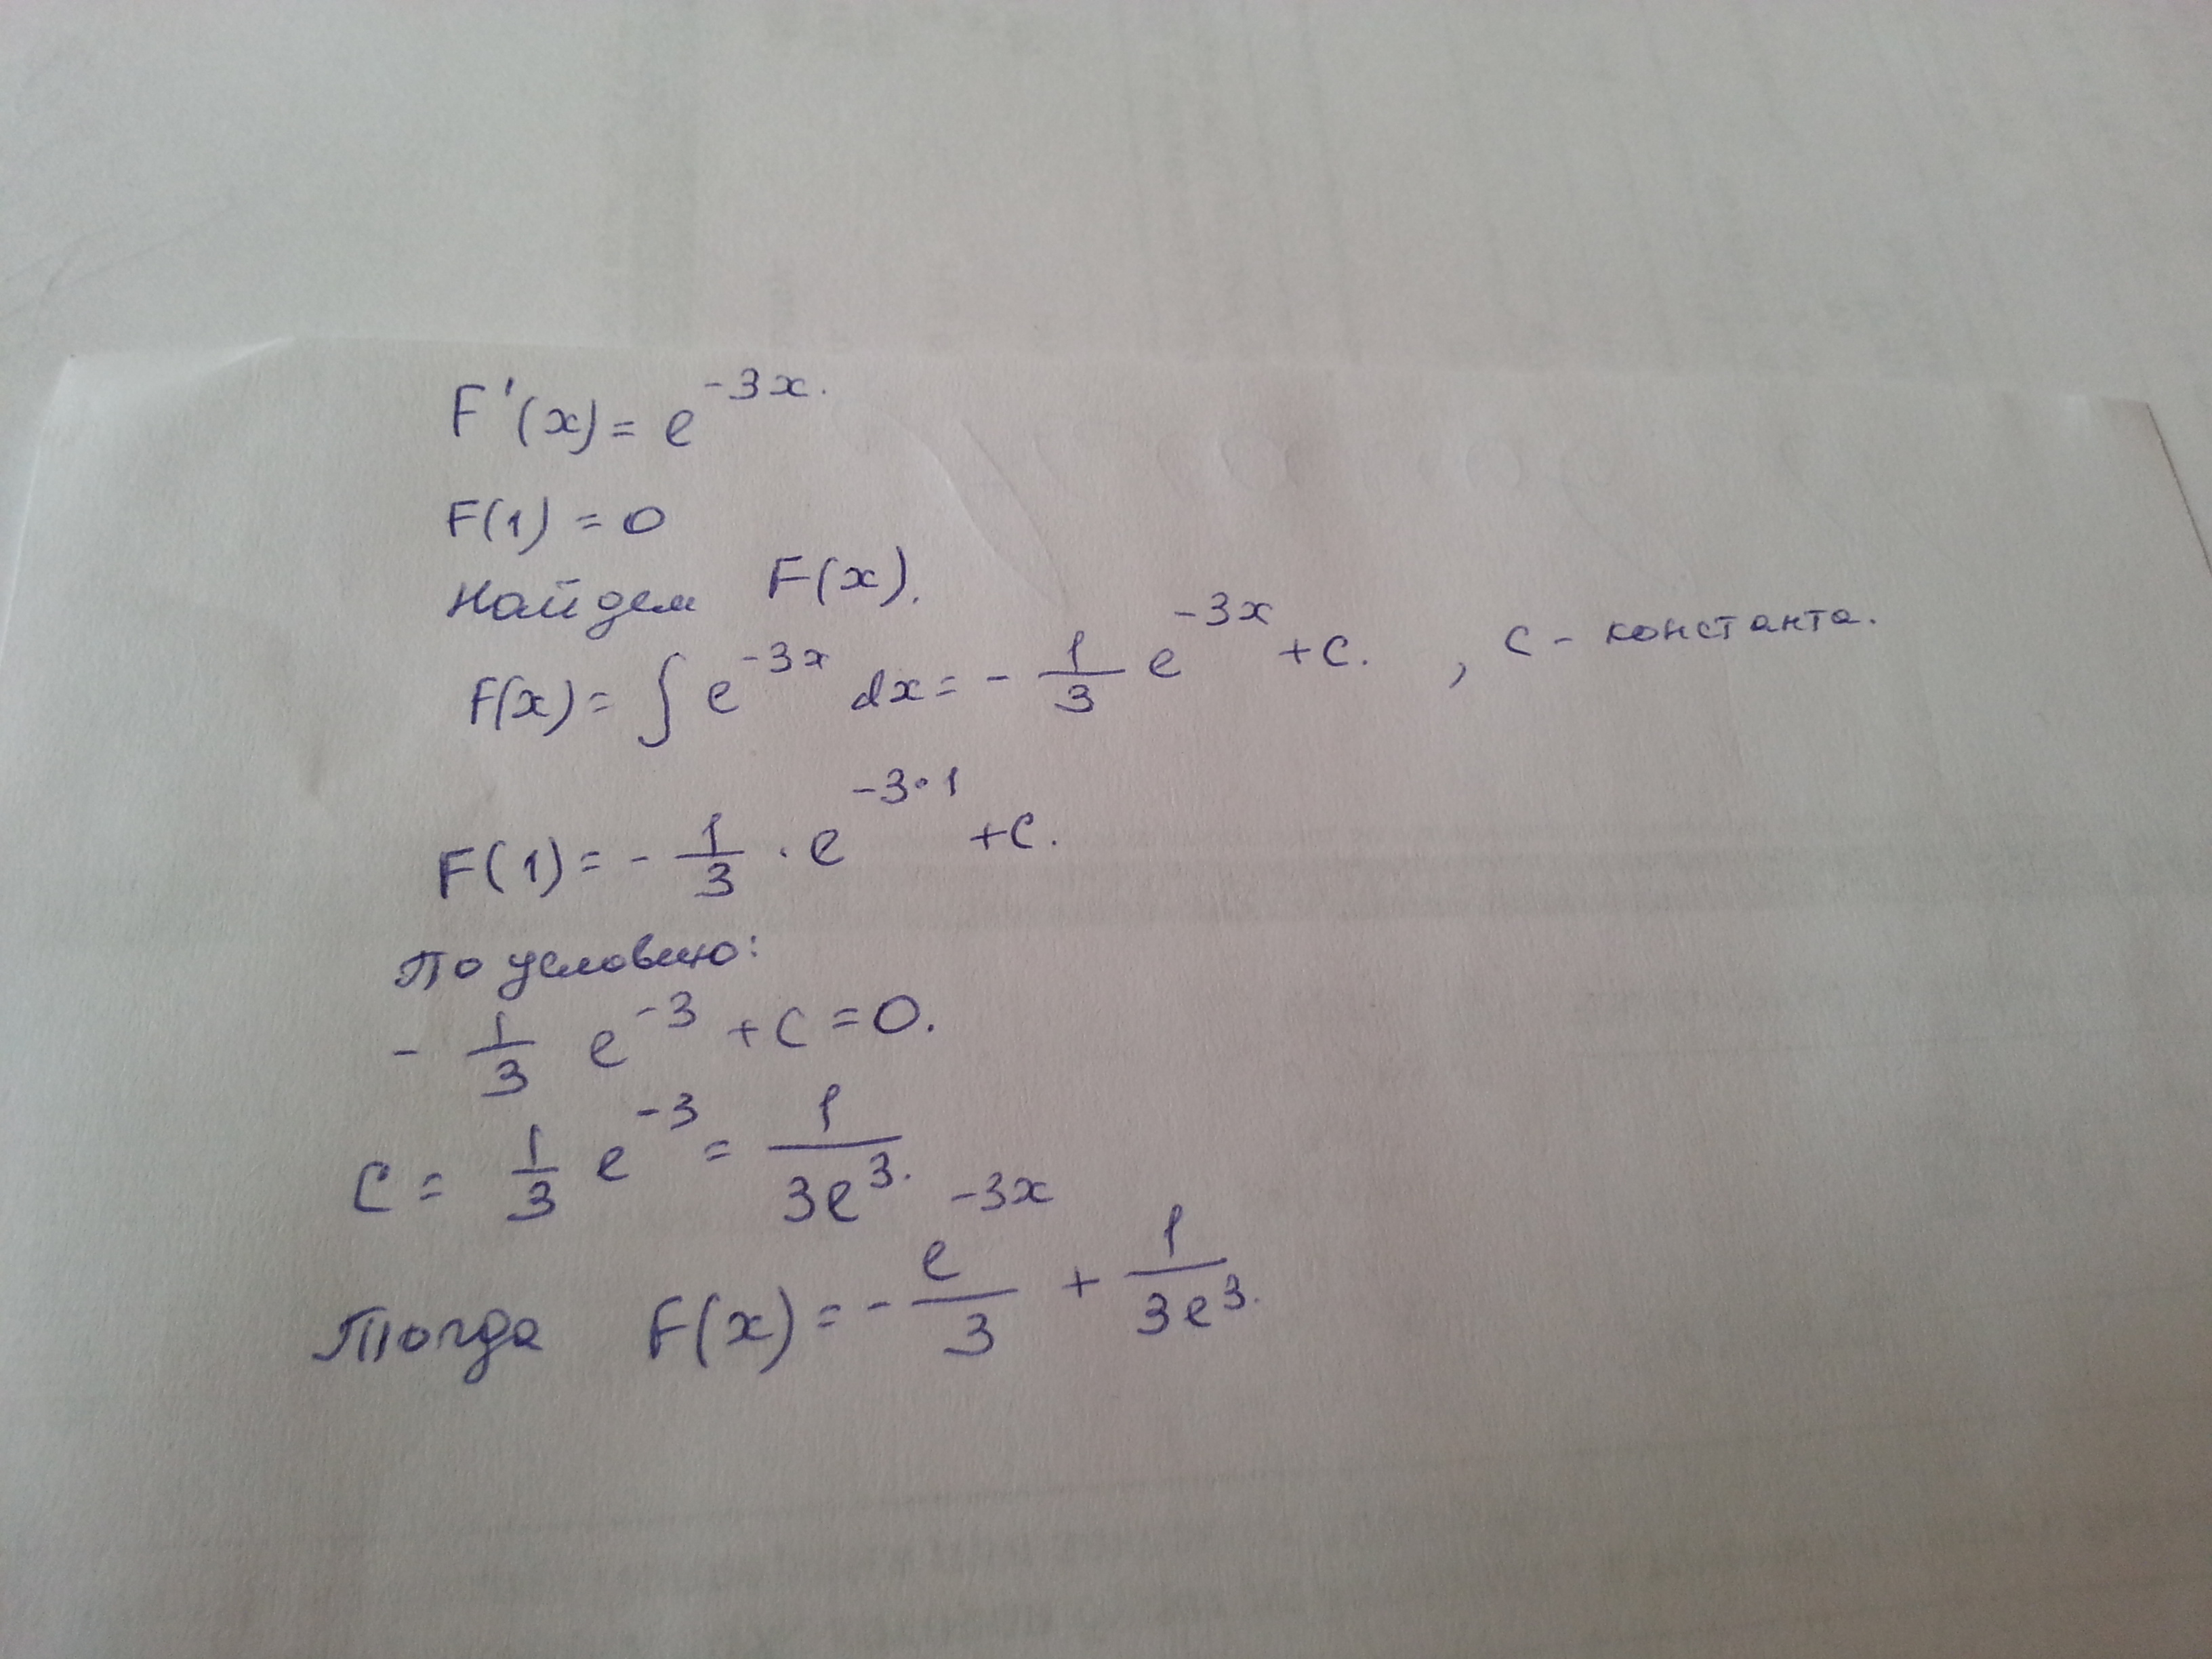 F'(x) = e^{-3x}.
F(1) = 0
Найдем F(x).
F(x) = ∫ e^{-3x} dx = - \frac{1}{3} e^{-3x} + C. , C - константа.
F(1) = - \frac{1}{3} · e^{-3·1} + C.
По условию:
- \frac{1}{3} e^{-3} + C = 0.
C = \frac{1}{3} e^{-3} = \frac{1}{3e^3}.
Тогда F(x) = - \frac{e^{-3x}}{3} + \frac{1}{3e^3}.